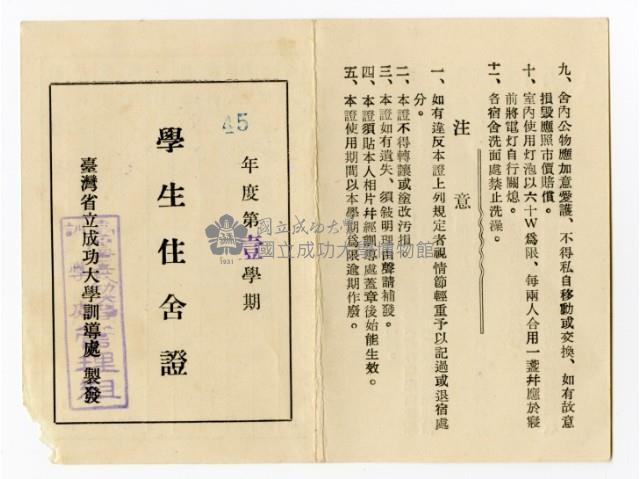 九、舍內公物應加意愛護、不得私自移動或交換、如有故意
損毀應照市價賠償。
十、室內使用灯泡以六十W爲限、每兩人合用一盞幷應於寢
前將電灯自行關熄。
十一、各宿舍洗面處禁止洗澡。
注意
一、如有違反本證上列規定者視情節輕重予以記過或退宿處
分。
二、本證不得轉讓或塗改污損
三、本證如有遺失、須敍明理由聲請補發。
四、本證須貼本人相片幷經訓導處蓋章後始能生效。
五、本證使用期間以本學期爲限逾期作廢。
45
年度第壹學期
學生住舍證
臺灣省立成功大學訓導處製發
管理組
國立成功大學
國立成功大學博物館
1931